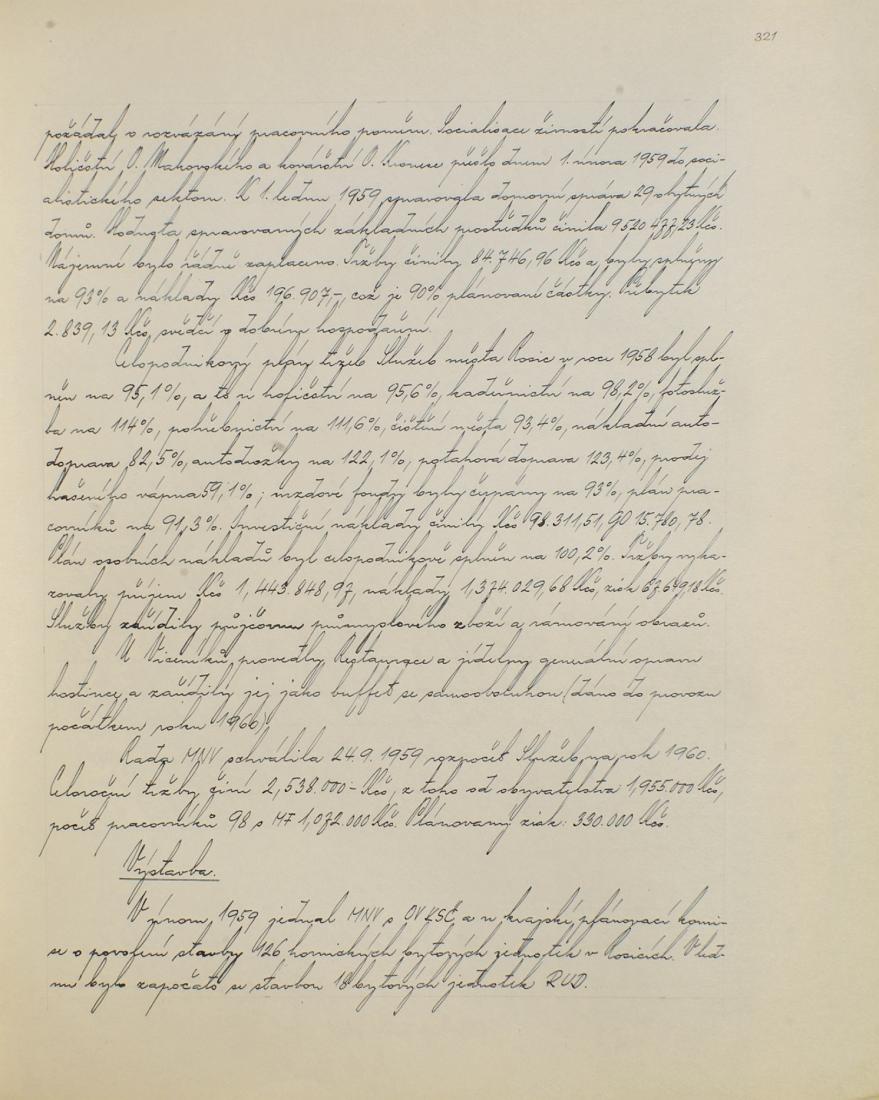 321
požádaly o rozvázání pracovního poměru. Socialisace živností pokračovala.
Holičství O. Makovského a kovářství O. Kronese přešlo dnem 1. února 1959 do soci-
alistického sektoru. K 1. lednu 1959 spravovala domovní správa 29 obytných
domů. Hodnota spravovaných základních prostředků činila 9520 477,23 Kčs.
Nájemné bylo řádně zaplaceno. Tržby činily 84.746,96 Kčs a byly splněny
na 93% a náklady Kčs 196.907,-, což je 90% plánované částky. Přebytek
2.839,13 Kčs svědčí o dobrém hospodaření.
Celopodnikový plán tržeb Služeb města Rosic v roce 1958 byl spl-
něn na 95,1%, a to u holičství na 95,6%, kadeřnictví na 98,2%, fotoslуž-
ba na 114%, pohřebnictví na 111,6%, čištění města 93,4%, nákladní auto-
doprava 82,5%, autodrožky na 122,1%, potahová doprava 123,4%, prodej
hašeného vápna 59,1%; mzdové fondy byly čerpány na 93%, plán pra-
covníků na 91,3%. Investiční náklady činily Kčs 98.311,51, GO 15.780,78.
Plán osobních nákladů byl celopodnikově splněn na 100,2%. Tržby vyka-
zovaly příjem Kčs 1,443.848,97, náklady 1,374.029,68 Kčs, zisk Kčs.
Služby zařídily půjčovnu průmyslového zboží a rámování obrazů.
U Viceníků provedly Restaurace a jídelny generální opravu
hostince a zařídily jej jako buffet se samoobsluhou (dáno do provozu
počátkem roku 1960).
Rada MNV schválila 24.9. 1959 rozpočet Služeb na rok 1960.
Celoroční tržby činí 2,538.000.- Kčs, z toho od obyvatelstva 1,955.000 Kčs,
počet pracovníků 98 s MF 1,072.000 Kčs. Plánovaný zisk: 330.000 Kčs.
Výstavba.
V únoru 1959 jednal MNV s OV KSČ a u krajské plánovací komi-
se o povolení stavby 126 hornických bytových jednotek v Rosicích. V led-
nu bylo započato se stavbou 18 bytových jednotek RUD.